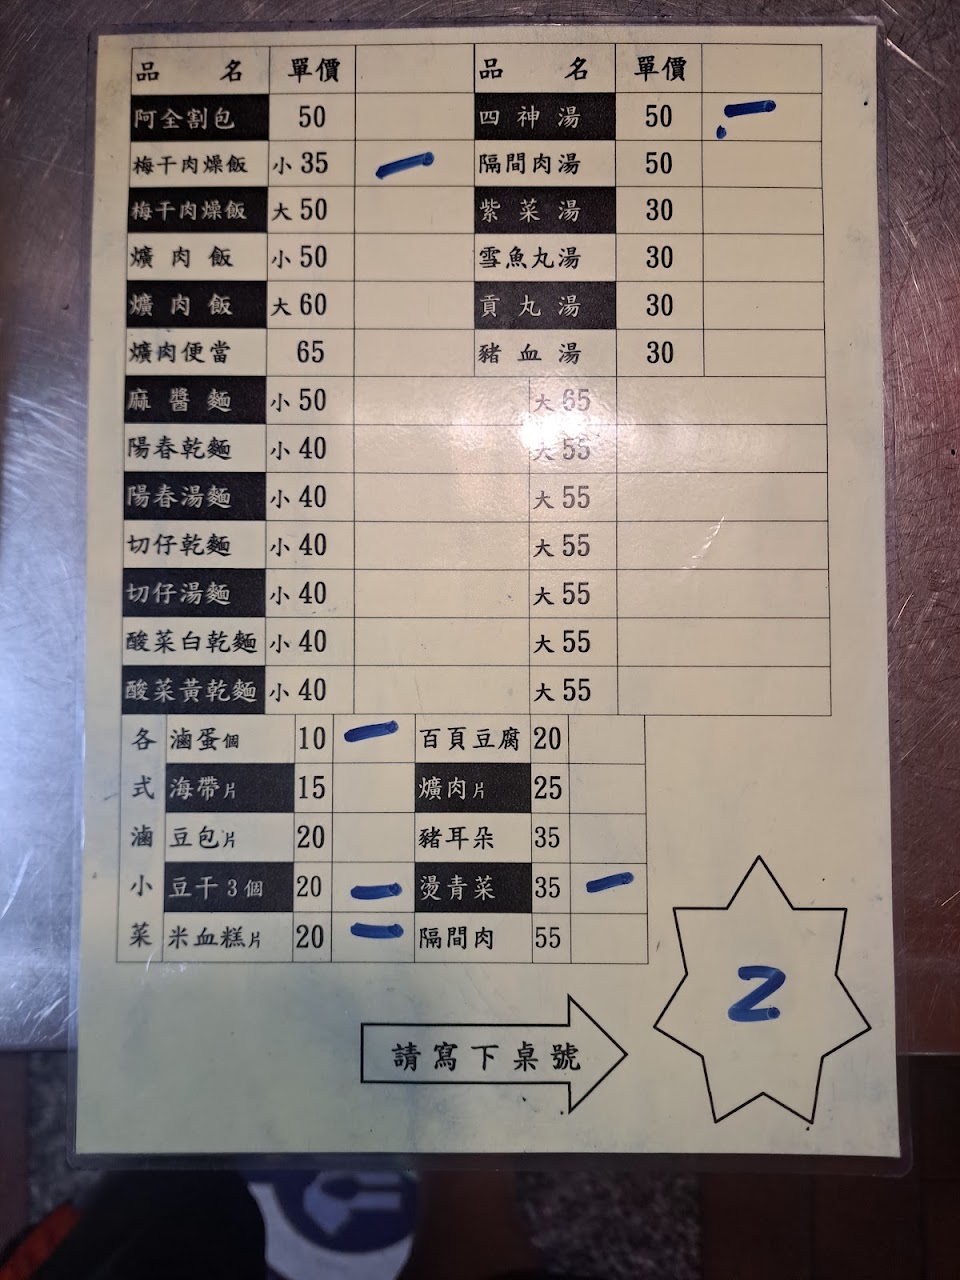 品 名 單價 品 名 單價
阿全割包 50 四神湯 50
梅干肉燥飯 小 35 隔間肉湯 50
梅干肉燥飯 大 50 紫菜湯 30
爌肉飯 小 50 雪魚丸湯 30
爌肉飯 大 60 貢丸湯 30
爌肉便當 65 豬血湯 30
麻醬麵 小 50 大 65
陽春乾麵 小 40 大 55
陽春湯麵 小 40 大 55
切仔乾麵 小 40 大 55
切仔湯麵 小 40 大 55
酸菜白乾麵 小 40 大 55
酸菜黃乾麵 小 40 大 55
各 滷蛋個 10 百頁豆腐 20
式 海帶片 15 爌肉片 25
滷 豆包片 20 豬耳朵 35
小 豆干3個 20 燙青菜 35
菜 米血糕片 20 隔間肉 55
2
請寫下桌號